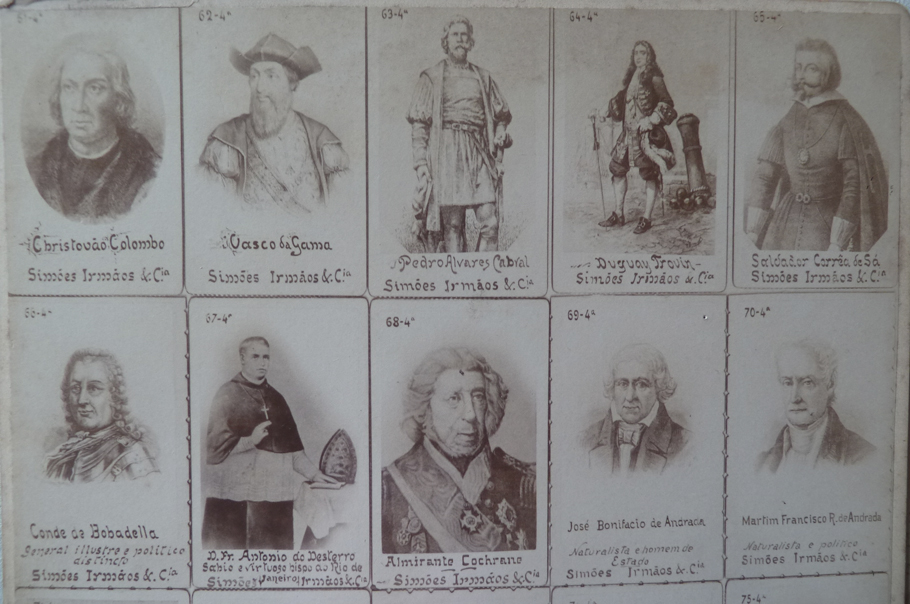 61-4ª
Christovão Colombo
Simões Irmãos & Cia
62-4ª
Vasco da Gama
Simões Irmãos & Cia
63-4ª
Pedro Alvares Cabral
Simões Irmãos & Cia
64-4ª
Duguay Trouin
Simões Irmãos & Cia
65-4ª
Salvador Corrêa de Sá
Simões Irmãos & Cia
66-4ª
Conde de Bobadella
General illustre e politico
distincto
Simões Irmãos & Cia
67-4ª
D. Fr. Antonio do Desterro
Sabio e virtuoso bispo do Rio de
Janeiro
Simões Irmãos & Cia
68-4ª
Almirante Cochrane
Simões Irmãos & Cia
69-4ª
José Bonifacio de Andrada
Naturalista e homem de
Estado
Simões Irmãos & Cia
70-4ª
Martim Francisco R. de Andrada
Naturalista e politico
Simões Irmãos & Cia
75-4ª